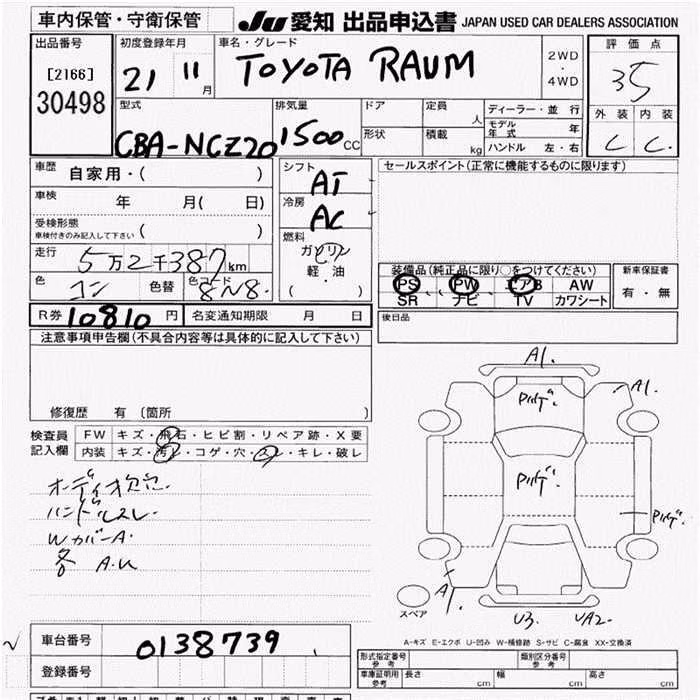 車内保管・守衛保管
JU 愛知 出品申込書 JAPAN USED CAR DEALERS ASSOCIATION
出品番号
[2166]
30498
初度登録年月
21 11月
車名・グレード
TOYOTA RAUM
2WD
・
4WD
評価点
3.5
外装 内装
C C
型式
CBA-NCZ20
排気量
1500cc
ドア
形状
定員 人
積載 kg
ディーラー・並行
モデル年式 年
ハンドル 左・右
車歴
自家用・( )
車検
年 月( 日)
受検形態
車検付きのみ記入して下さい ( )
走行
5万2千387km
色
コン
色替
色コード
8N8
シフト
AT
冷房
AC
燃料
ガソリン
軽・油
( ・ )
セールスポイント(正常に機能するものに限ります)
装備品(純正品に限り○をつけてください)
PS PW エアB AW
SR ナビ TV カワシート
新車保証書
有・無
R券 10810円
名変通知期限 月 日
後日品
注意事項申告欄(不具合内容等は具体的に記入して下さい)
修復歴 有 (箇所 )
検査員
記入欄
FW キズ・飛石・ヒビ割・リペア跡・X要
内装 キズ・汚れ・コゲ・穴・スレ・キレ・破レ
オーディオ欠品
ハンドルスレ
WカバーA.
各 A.U
A1.
A1.
PリペG
A1.
スペア
U3. UA2.
A-キズ E-エクボ U-凹み W-補修跡 S-サビ C-腐食 XX-交換済
車台番号
0138739
登録番号
型式指定番号
参考
類別区分番号
参考
車庫証明用
参考
長さ cm 幅 cm 高さ cm